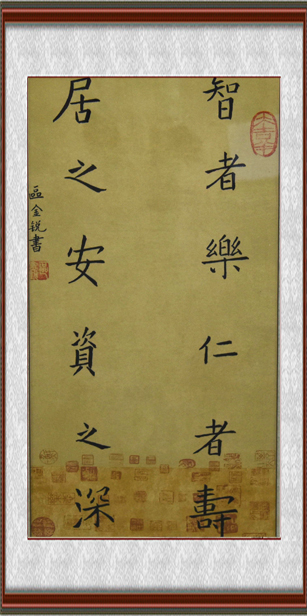 智者樂仁者壽
居之安資之深
區金銳書